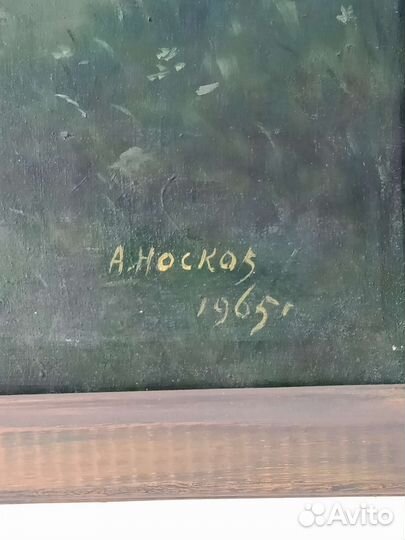 А. Носков
1965г
Avito